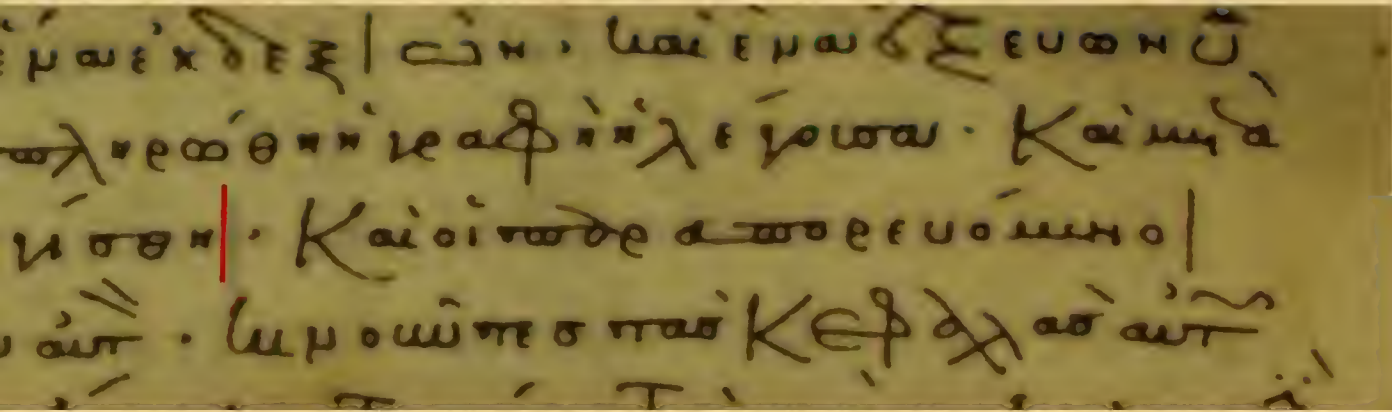 ἕνα ἐκ δεξιῶν· καὶ ἕνα ἐξ εὐωνύ
πληρώθη ἡ γραφὴ ἡ λέγουσα· Καὶ μετὰ
γίσθη· Καὶ οἱ παραπορευόμενοι
αὐτ· κινοῦντες τὰς Κεφαλὰς αὐτ